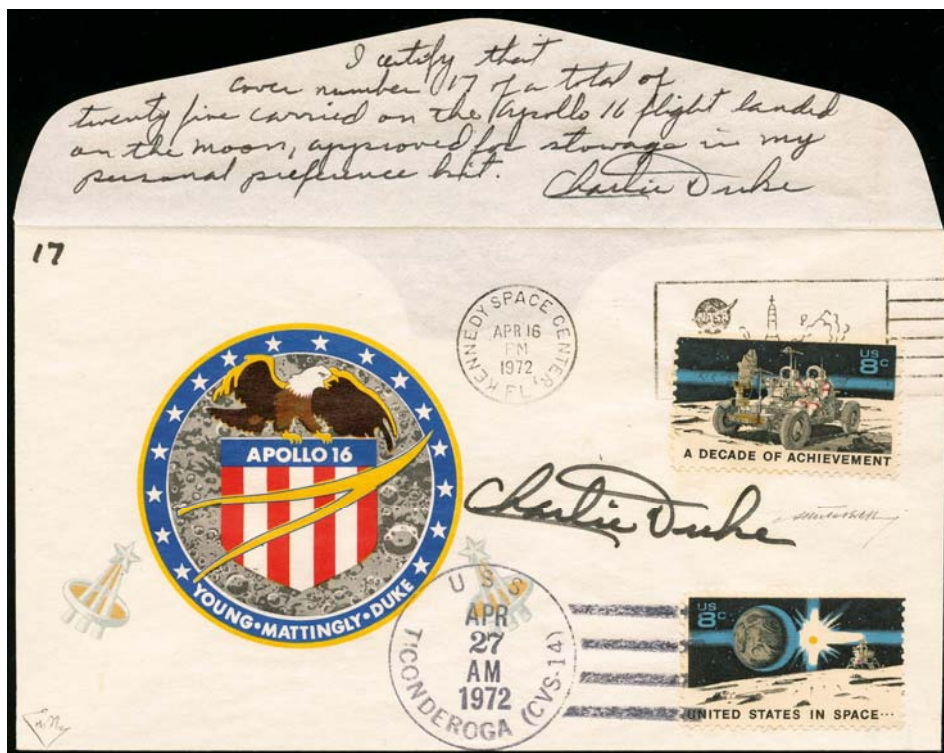 I certify that
cover number 17 of a total of
twenty five carried on the Apollo 16 flight landed
on the moon, approved for stowage in my
personal preference kit. Charlie Duke
17
KENNEDY SPACE CENTER, FL
APR 16
PM
1972
NASA
US
8c
A DECADE OF ACHIEVEMENT
APOLLO 16
YOUNG • MATTINGLY • DUKE
Charlie Duke
USS TICONDEROGA (CVS-14)
APR
27
AM
1972
US
8c
UNITED STATES IN SPACE...